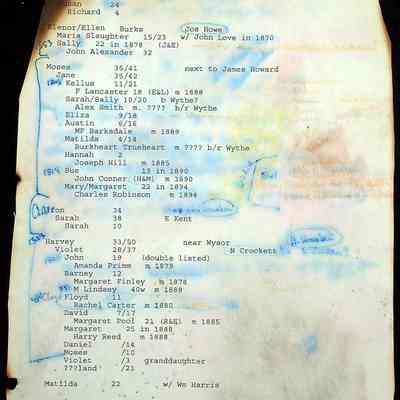 Susan 24
Richard 4
Elenor/Ellen Burks Jos Howe
Maria Slaughter 15/23 w/ John Love in 1870
Sally 22 in 1878 (J&E)
John Alexander 32
Moses 36/41 next to James Howard
Jane 35/42
Kellus 11/21
F Lancaster 18 (E&L) m 1888
Sarah/Sally 10/20 b Wythe?
Alex Smith m. ???? b/r Wythe
Eliza 9/18
Austin 6/16
MF Barksdale m 1889
Matilda 4/14
Burkheart Trueheart m ???? b/r Wythe
Hannah 2
Joseph Hill m 1885
Sue 15 in 1890
John Conner (H&M) m 1890
Mary/Margaret 22 in 1894
Charles Robinson m 1894
Clifton 34
Sarah 38 E Kent
Sarah 10
Harvey 33/50 near Wysor
Violet 28/37 N Crockett
John 19 (double listed)
Amanda Primm m 1879
Barney 12
Margaret Finley m 1878
M Lindsey 40w m 1888
Floyd 11
Rachel Carter m 1880
David 7/17
Margaret Pool 21 (R&E) m 1885
Margaret 25 in 1888
Harry Reed m 1888
Daniel /14
Moses /10
Violet /3 granddaughter
???land /21
Matilda 22 w/ Wm Harris